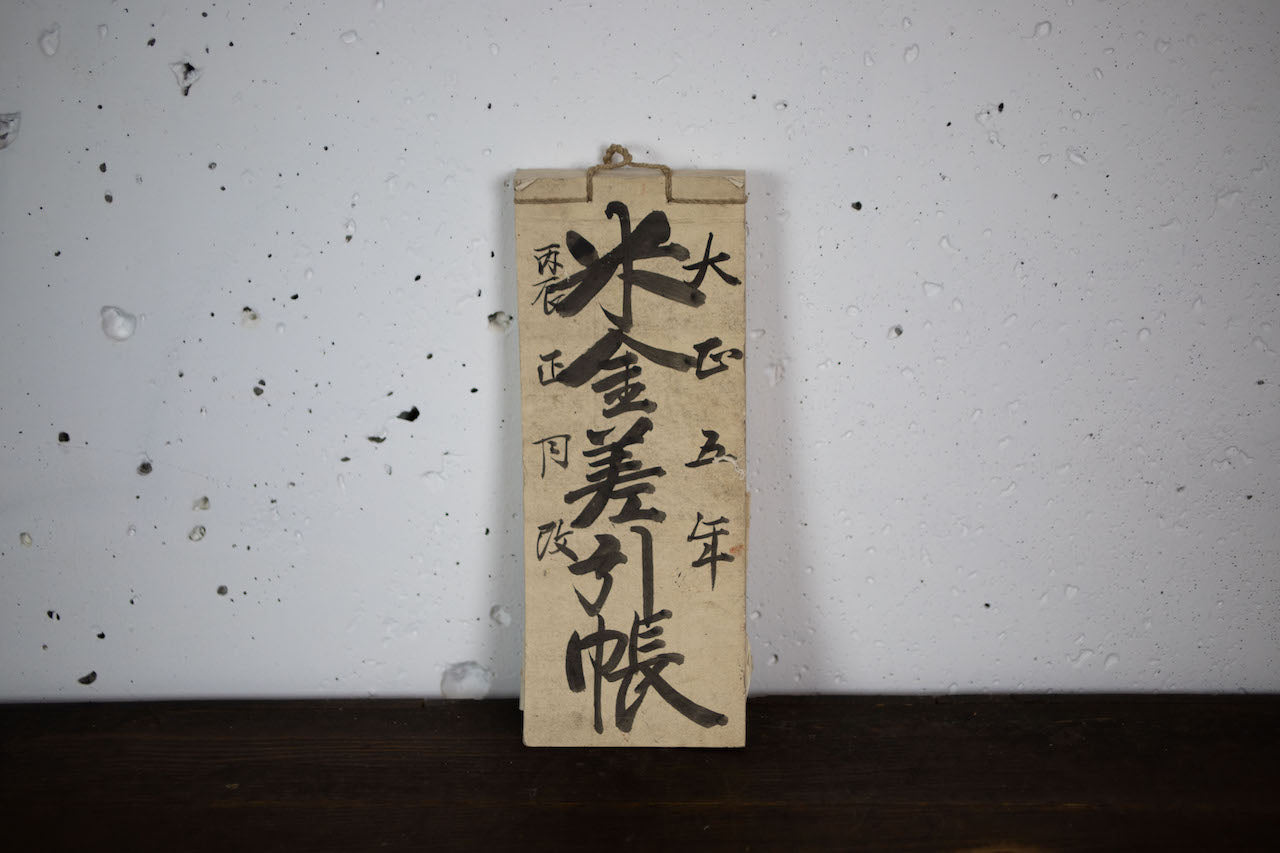 大正五年
米金差引帳
丙辰正月改